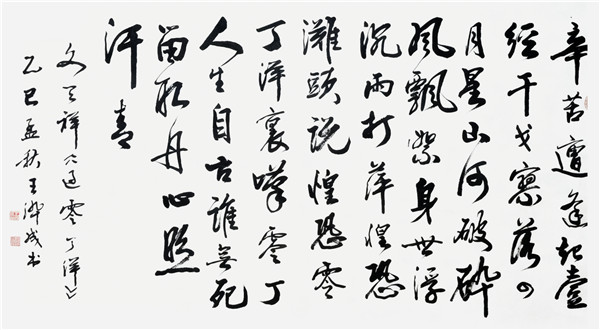 辛苦遭逢起壹
經干戈寥落四
月星山河破碎
風飄絮身世浮
沉雨打萍惶恐
灘頭說惶恐零
丁洋裏嘆零丁
人生自古誰無死
留取丹心照
汗青
文天祥《過零丁洋》
乙巳孟秋王成书